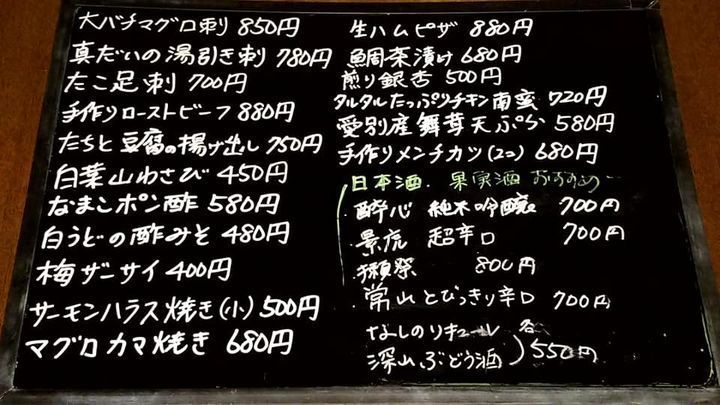 大バチマグロ刺 850円
真だいの湯引き刺 780円
たこ足刺 700円
手作りローストビーフ 880円
たちと豆腐の揚げ出し 750円
白菜山わさび 450円
なまこポン酢 580円
白うどの酢みそ 480円
梅ザーサイ 400円
サーモンハラス焼き(小) 500円
マグロカマ焼き 680円
生ハムピザ 880円
鯛茶漬け 680円
煎り銀杏 500円
タルタルたっぷりチキン南蛮 720円
愛別産舞茸天ぷら 580円
手作りメンチカツ(2コ) 680円
日本酒・果実酒 おすすめ
酔心 純米吟醸 700円
景虎 超辛口 700円
獺祭 800円
常山 とびっきり辛口 700円
なしのリキュール 各
深山ぶどう酒 550円